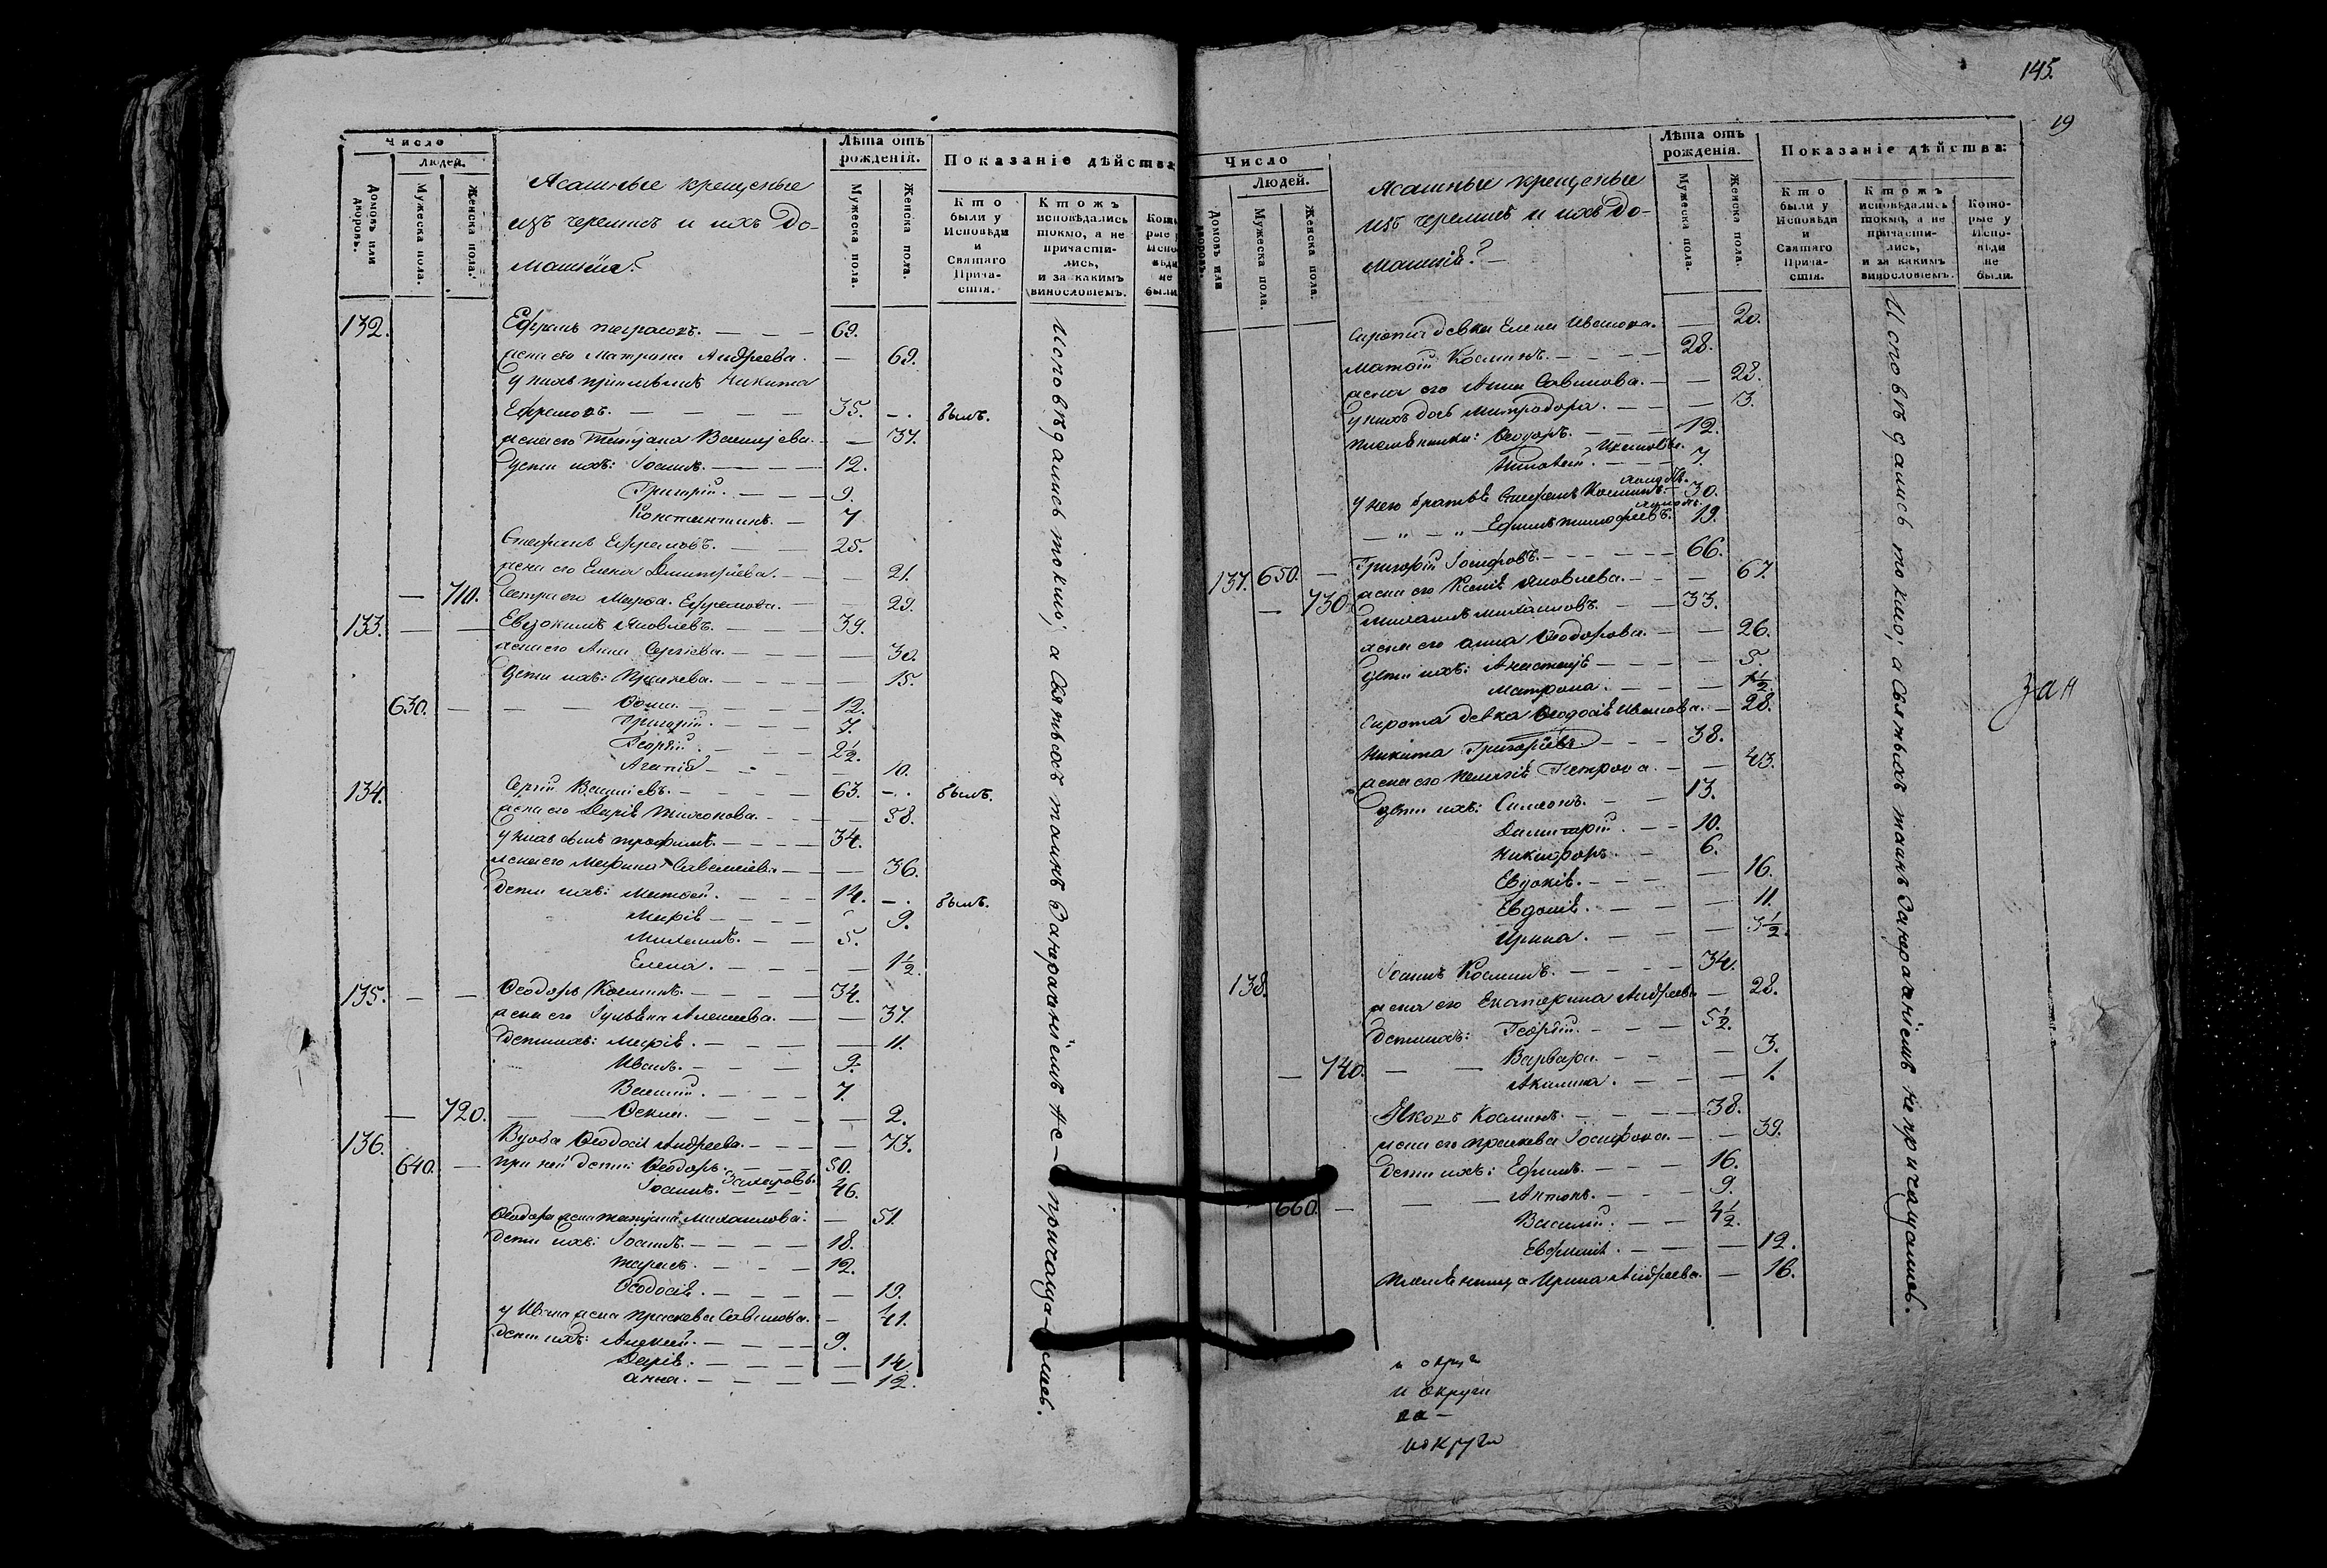 Число
Людей.
Домовъ или дворовъ.
Мужеска пола.
Женска пола.
Ясашные крещеные
изъ черемисъ и ихъ до-
машнiе.
Лѣта отъ рожденiя.
Мужеска пола.
Женска пола.
Показанiе дѣйства
Кто были у Исповѣди и Святаго Прича-стiя.
Ктожъ исповѣдались токмо, а не причасти-лись, и за какимъ винословiемъ.
132. Ефремъ — — — 69.
жена его Матрона Андреева. — 69.
у нихъ Никита
Ефремовъ. — — — — 35. — . былъ.
жена его Татiана Васильева. — — 37.
Дети ихъ: Iоаннъ. — — — — 12.
Григорiй. — — — 9.
Константинъ. — 7
Стефанъ Ефремовъ. — — 25.
жена его Елена Димитрiева. — — 21.
— 710. Сестра его Марѳа Ефремова. — — 23.
133. — — Евдокимъ Яковлевъ. — — — 39.
жена его Анна Сергiева. — — — — 30.
Дети ихъ: — — — — 15.
630. — — — Ѳома. — — — — 12.
Григорiй. — — — 7.
Георгiй. — — — 2½.
Агапiя — — — 10.
134. Сергiй Васильевъ. — — — — 63. — . былъ.
жена его Дарiя Тихонова. — — — — 58.
у нихъ сынъ Трофимъ. — — — — 34.
жена его Марина Савельева — — 36.
Дети ихъ: Матѳей. — — — 14. — . былъ.
Марiя — — — — 9.
Михаилъ. — — 5.
Елена. — — — — 1½.
135. — — Ѳеодоръ Косминъ. — — — — 34.
жена его Iулiана Алексеева. — — 37.
Дети ихъ: Марiя. — — — — — 11.
Иванъ. — — — 9.
Василiй. — — — — 7.
— 720. — — — — — — — 2.
136. Вдова Ѳеодосiя Андреева. — — — — 73.
640. — при ней дети: Ѳеодоръ. — — — 50.
Iоаннъ. Захаровы. — — — 46.
Ѳеодора жена Татiана Михаилова. — 51.
Дети ихъ: Iоаннъ. — — — — 18.
Тарасъ. — — — 12.
Ѳеодосiя. — — — — — 19.
у Ивана жена Праскева Савинова. — 41.
Дети ихъ: — — — — — 9.
Дарiя. — — — — 14.
Анна. — — — — — 12.
Исповѣдались токмо; а Святыхъ таинъ за нерачнiемъ не-причаща-лись.
145.
19
Число
Людей.
Домовъ или дворовъ.
Мужеска пола.
Женска пола.
Ясашные крещеные
изъ черемисъ и ихъ до-
машнiе. —
Лѣта отъ рожденiя.
Мужеска пола.
Женска пола.
Показанiе дѣйства:
Кто были у Исповѣди и Святаго Прича-стiя.
Ктожъ исповѣдались токмо, а не причасти-лись, и за какимъ винословiемъ.
Кото-рые у Испо-вѣди не были.
Сирота девка Елена Иванова. — 20.
Матѳiй Косминъ. — — — — 28.
жена его Анна Савинова. — — 28.
у нихъ дочь Митродора. — — — 13.
племянники: Ѳеодоръ. — — — 12.
— — — 7.
у него братья Стефанъ Косминъ. — 30.
— „ — „ Ефимъ Тимофеевъ. 19.
Григорiй Iосифовъ. — — — — — 66.
137. 650. — жена его Ксенiя Яковлева. — — — 67.
— 730. Михаилъ Михаиловъ. — — 33.
жена его Анна Ѳеодорова. — — 26.
Дети ихъ: Анастасiя — — — — 5.
Матрона. — — — — 1½.
Сирота девка Ѳеодосiя Иванова. — 28.
Никита Григорiевъ. — — — 38.
жена его Петрова. — — 43.
Дети ихъ: Симеонъ. — — 13.
Димитрiй. — — 10.
Никифоръ. — — 6.
Евдокiя. — — — — 16.
— — — — 11.
Ирина. — — — — 3½.
138. Iоаннъ Косминъ. — — — — 34.
жена его Екатерина Андреева — 28.
Дети ихъ: Георгiй. — — — 5½.
— 740. — — Варвара. — — — 3.
Акилина. — — — — 1.
Яковъ Косминъ. — — — — 38.
жена его Праскева Iосифова. — — 39.
Дети ихъ: Ефимъ. — — — 16.
660. — — — Антонъ. — — — 9.
Василiй. — — 4½.
— — — 12.
племянница Ирина Андреева. — 16.
Исповѣдались токмо; а Святыхъ таинъ за нерачнiемъ не причащались.
зан
и округи